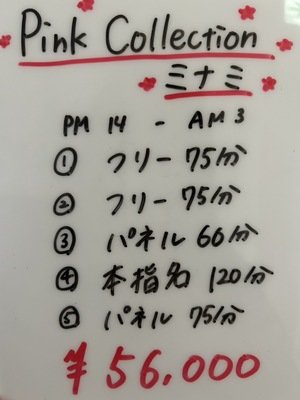 Pink Collection
ミナミ
PM 14 - AM 3
① フリー 75分
② フリー 75分
③ パネル 60分
④ 本指名 120分
⑤ パネル 75分
¥56.000